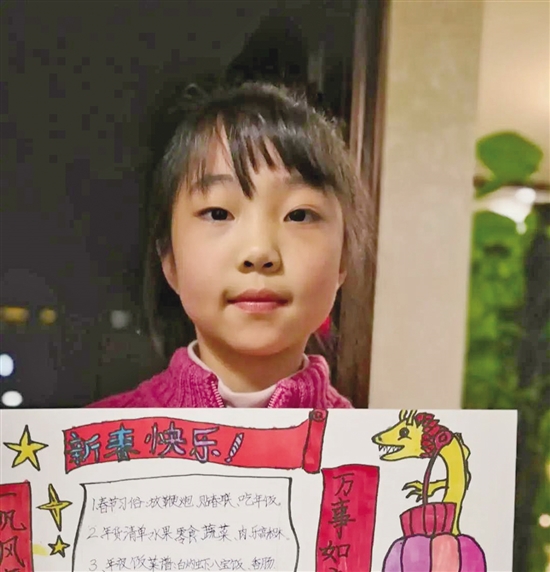 新春快乐!
一帆风
1.春节习俗:放鞭炮、贴春联、吃年饭
2.年货清单:水果、零食、蔬菜、肉
3.年夜饭菜谱:白灼虾、八宝饭、香肠
万事如